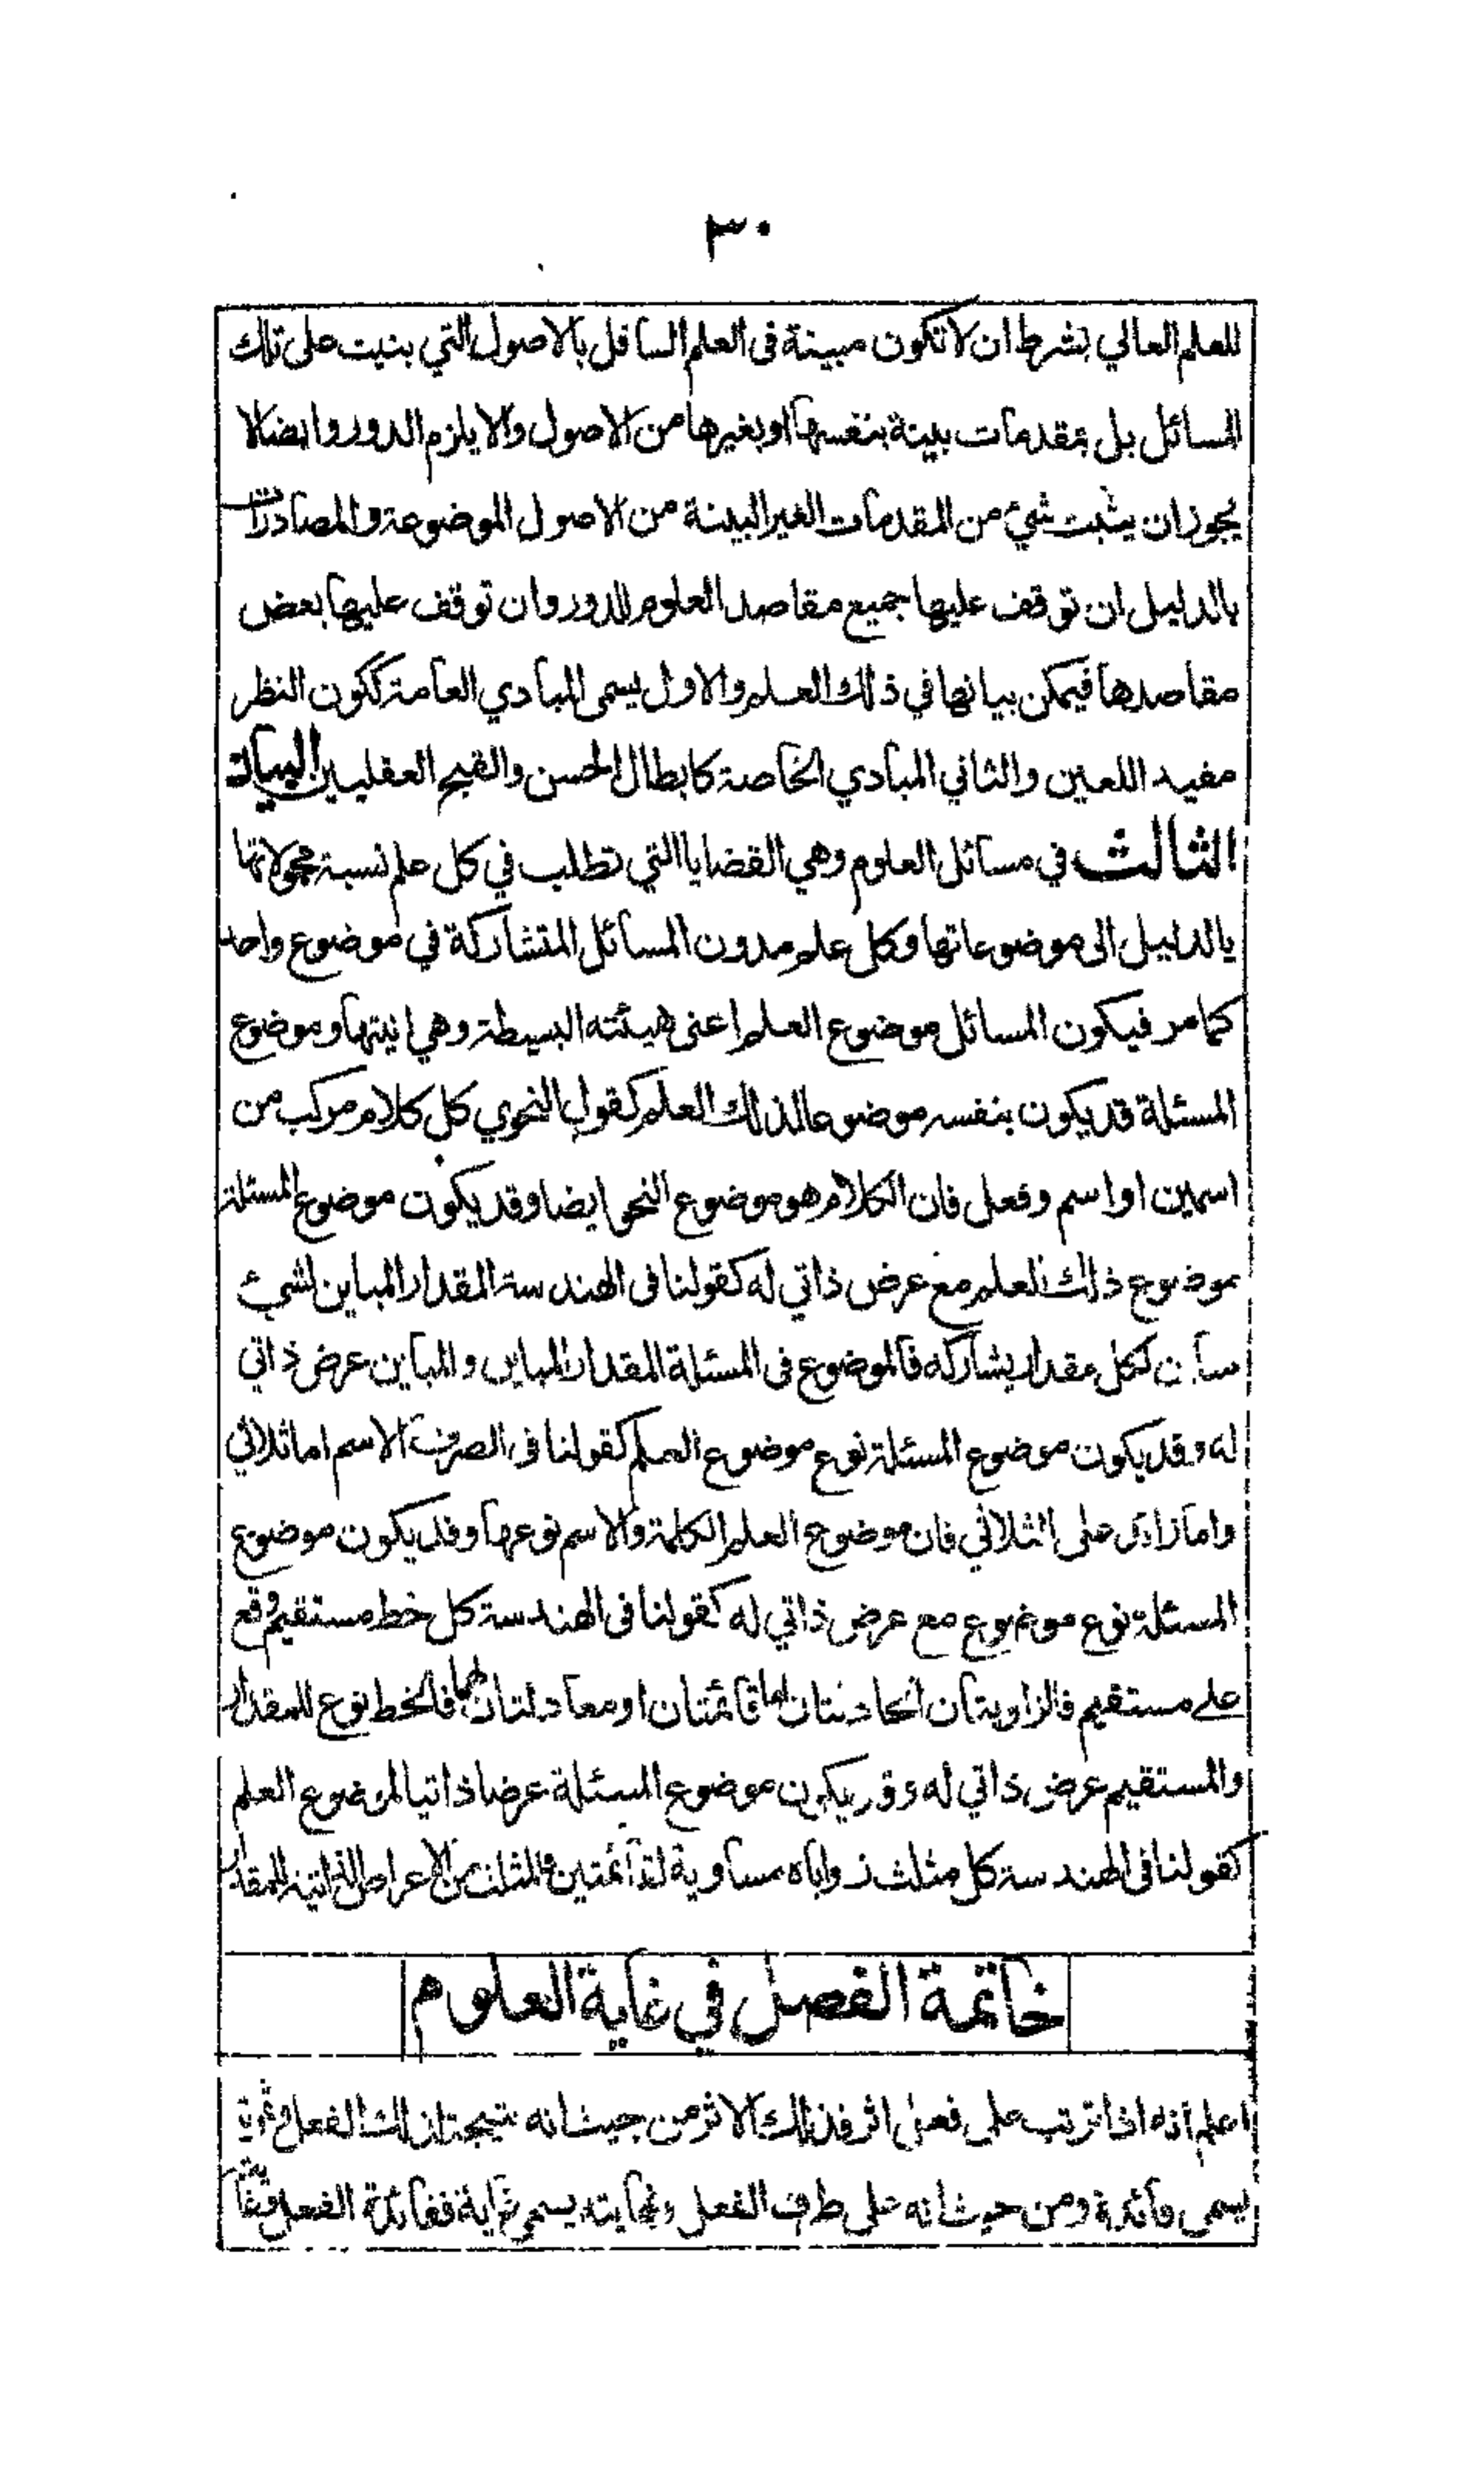 ٣٠
للعلم العالي بشرط ان لا تكون مبينة فى العلم السافل بالاصول التي بنيت على تلك
المسائل بل بمقدمات بينة بنفسها او بغيرها من الاصول والا يلزم الدور وايضا لا
يجوز ان يثبت شيء من المقدمات الغير البينة من الاصول الموضوعة والمصادرات
بالدليل ان توقف عليها جميع مقاصد العلوم للدور وان توقف عليها بعض
مقاصدها فيمكن بيانها في ذلك العلم والاول يسمى المبادي العامة ككون النظر
مفيد اللعين والثاني المبادي الخاصة كابطال الحسن والقبح العقليين البيان
الثالث في مسائل العلوم وهي القضايا التي تطلب في كل علم نسبة محمولاتها
بالدليل الى موضوعاتها وكل علم مدون المسائل المتشاركة في موضوع واحد
كما مر فيكون المسائل موضوع العلم اعنى هيئته البسيطة وهي انيتها وموضوع
المسئلة قد يكون بنفسه موضوعا لذلك العلم كقول النحوي كل كلام مركب من
اسمين او اسم وفعل فان الكلام هو موضوع النحو ايضا وقد يكون موضوع المسئلة
موضوع ذلك العلم مع عرض ذاتي له كقولنا فى الهندسة المقدار المباين لشيء
مباين لكل مقدار يشاركه فالموضوع فى المسئلة المقدار المباين والمباين عرض ذاتي
له وقد يكون موضوع المسئلة نوع موضوع العلم كقولنا فى الصرف الاسم اما ثلاثي
واما زائد على الثلاثي فان موضوع العلم الكلمة والاسم نوعها وقد يكون موضوع
المسئلة نوع موضوع مع عرض ذاتي له كقولنا فى الهندسة كل خط مستقيم وقع
على مستقيم فالزاويتان الحادثتان اما قائمتان او معادلتان لهما فالخط نوع للمقدار
والمستقيم عرض ذاتي له وقد يكون موضوع المسئلة عرضا ذاتيا لموضوع العلم
كقولنا فى الهندسة كل مثلث زواياه مساوية لقائمتين فالمثلث من الاعراض الذاتية للمقدار
خاتمة الفصل في غاية العلوم
اعلم انه اذا ترتب على فعل اثر فذلك الاثر من حيث انه نتيجة لذلك الفعل وثمرته
يسمى فائدة ومن حيث انه على طرف الفعل ونهايته يسمى غاية ففائدة الفعل وغايته